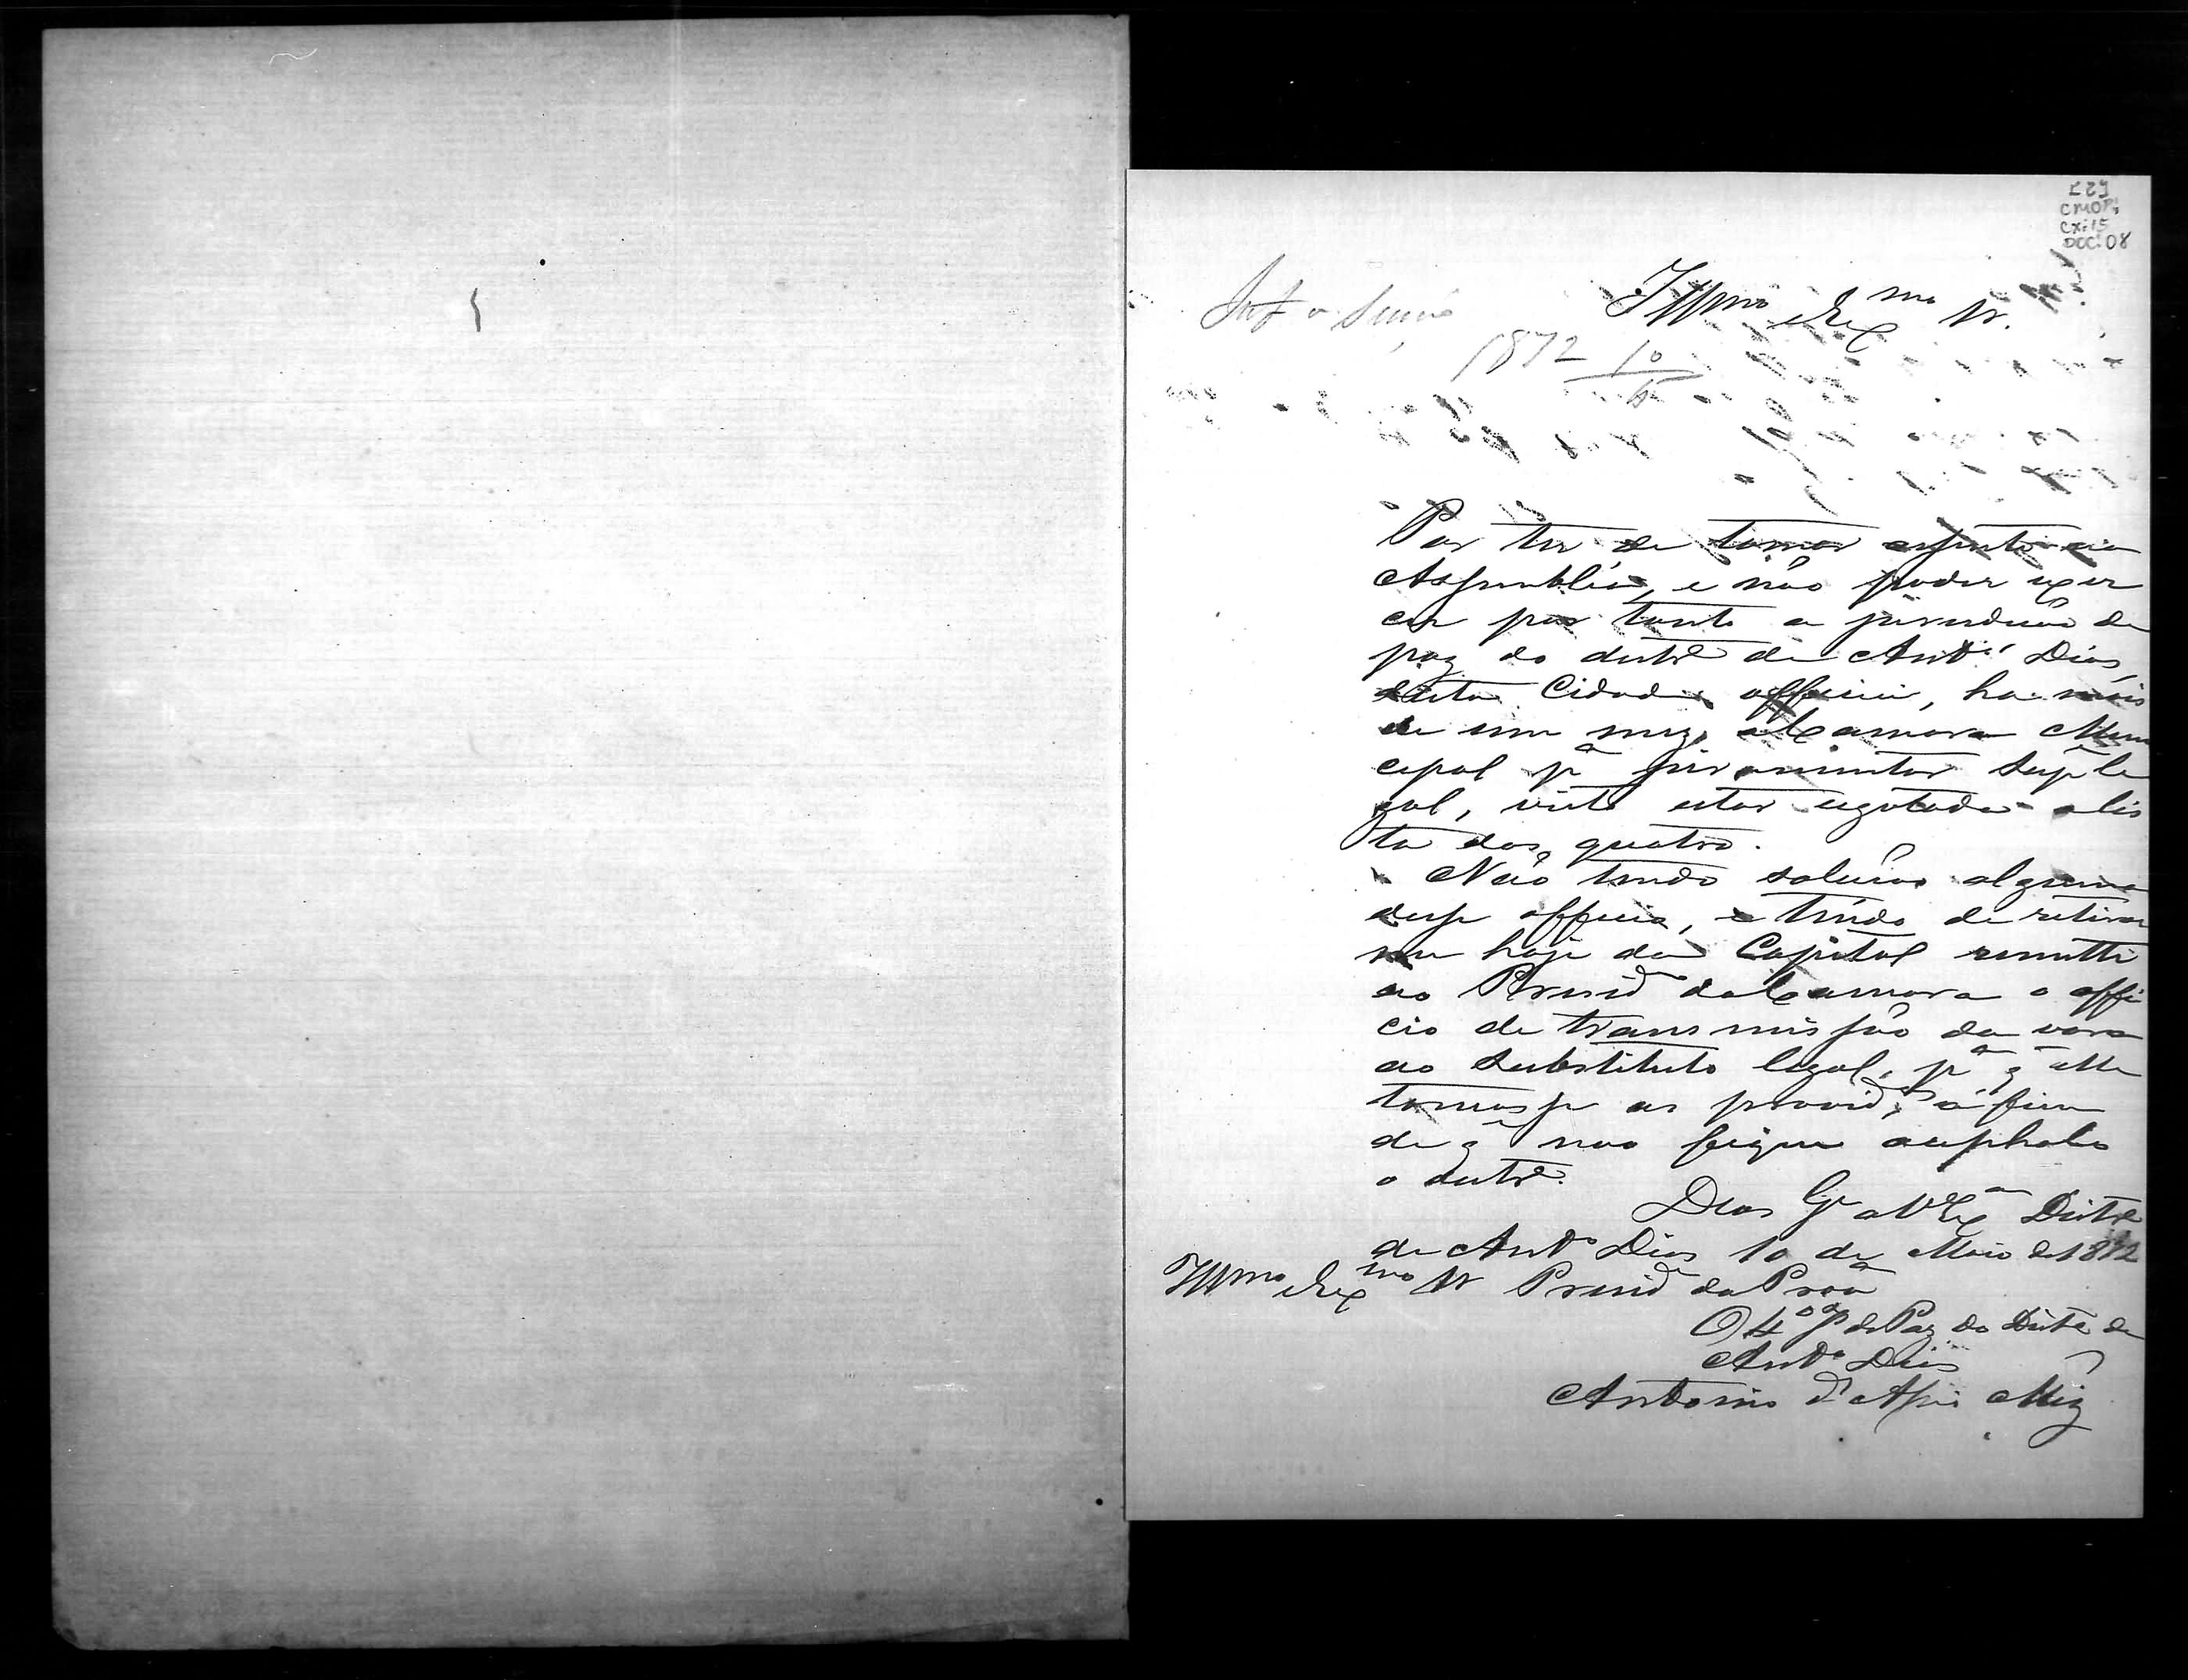 CMOP
CX:15
DOC:08
Illmo Exmo Sr.
1872 10/5
Por ter de tomar assento na
Assembléa, e não poder exer
cer por tanto a jurisdição de
paz do distrº de Antº Dias
desta Cidade, officiei, ha mais
de um mez, a Camara Muni
cipal pª juramentar suple
, visto estar esgotada a lis
ta dos quatro.
Não tendo solução alguma
desse officio, e tendo de retirar
me hoje da Capital remetti
ao Presidᵉ da Camara o offi
cio de transmissão da vara
ao substituto legal, pª q elle
tomasse as providᵃˢ á fim
de q não fique acephalo
o distrº.
Deos Gᵉ a V Exª Distrº
de Antº Dias 10 de Maio de 1872
Illmo Exmo Sr Presidᵉ da Provª
O 4º J de Paz do Distº de
Antº Dias
Antonio d'